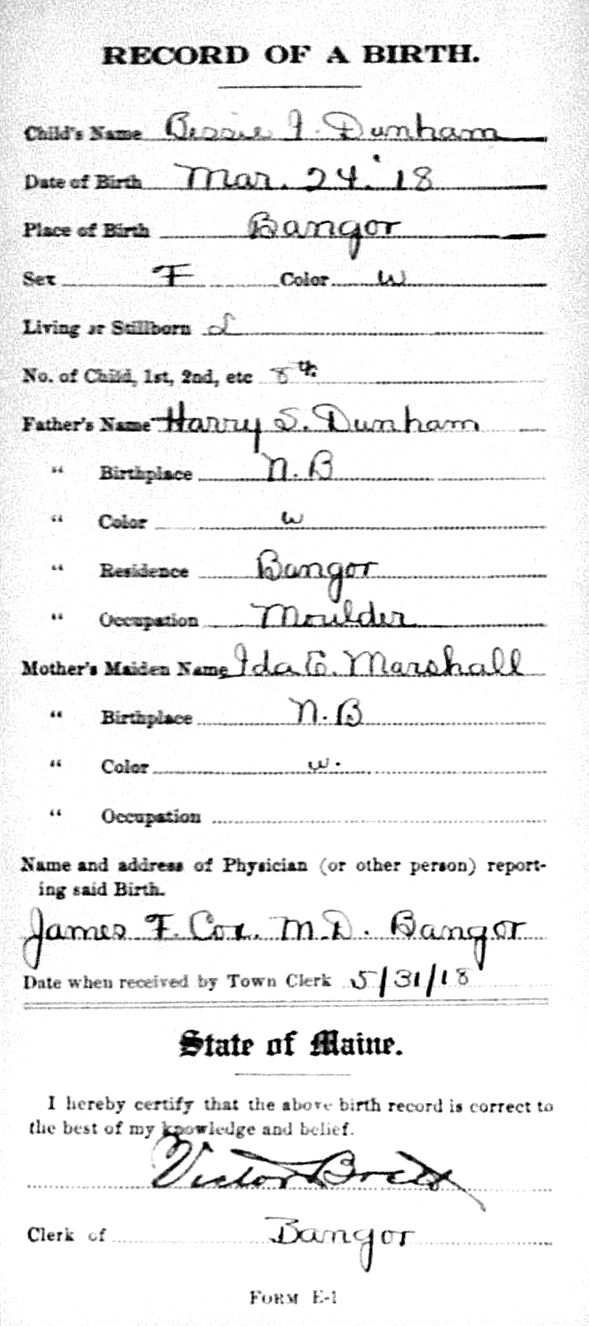 RECORD OF A BIRTH.
Child's Name Bessie I. Dunham
Date of Birth Mar. 24. '18
Place of Birth Bangor
Sex F Color W
Living or Stillborn L
No. of Child, 1st, 2nd, etc 8th
Father's Name Harry S. Dunham
" Birthplace N.B
" Color W
" Residence Bangor
" Occupation Moulder
Mother's Maiden Name Ida E. Marshall
" Birthplace N.B
" Color W.
" Occupation
Name and address of Physician (or other person) report-
ing said Birth.
James F. Cox. M.D. Bangor
Date when received by Town Clerk 5/31/18
State of Maine.
I hereby certify that the above birth record is correct to
the best of my knowledge and belief.
Victor Brett
Clerk of Bangor
FORM E-1